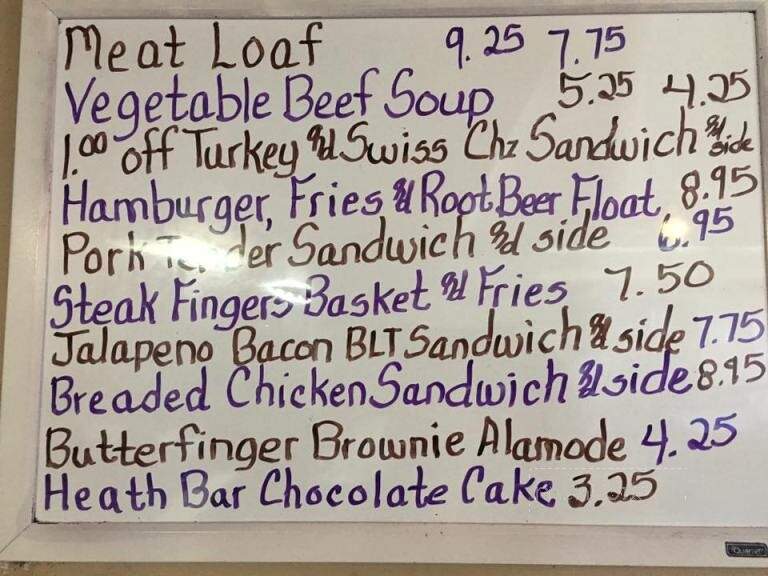 Meat Loaf 9.25 7.75
Vegetable Beef Soup 5.25 4.25
1.00 off Turkey and Swiss Chz Sandwich and side
Hamburger, Fries and Root Beer Float 8.95
Pork Tender Sandwich and side 6.95
Steak Fingers Basket and Fries 7.50
Jalapeno Bacon BLT Sandwich and side 7.75
Breaded Chicken Sandwich and side 8.95
Butterfinger Brownie Alamode 4.25
Heath Bar Chocolate Cake 3.25
Quartet